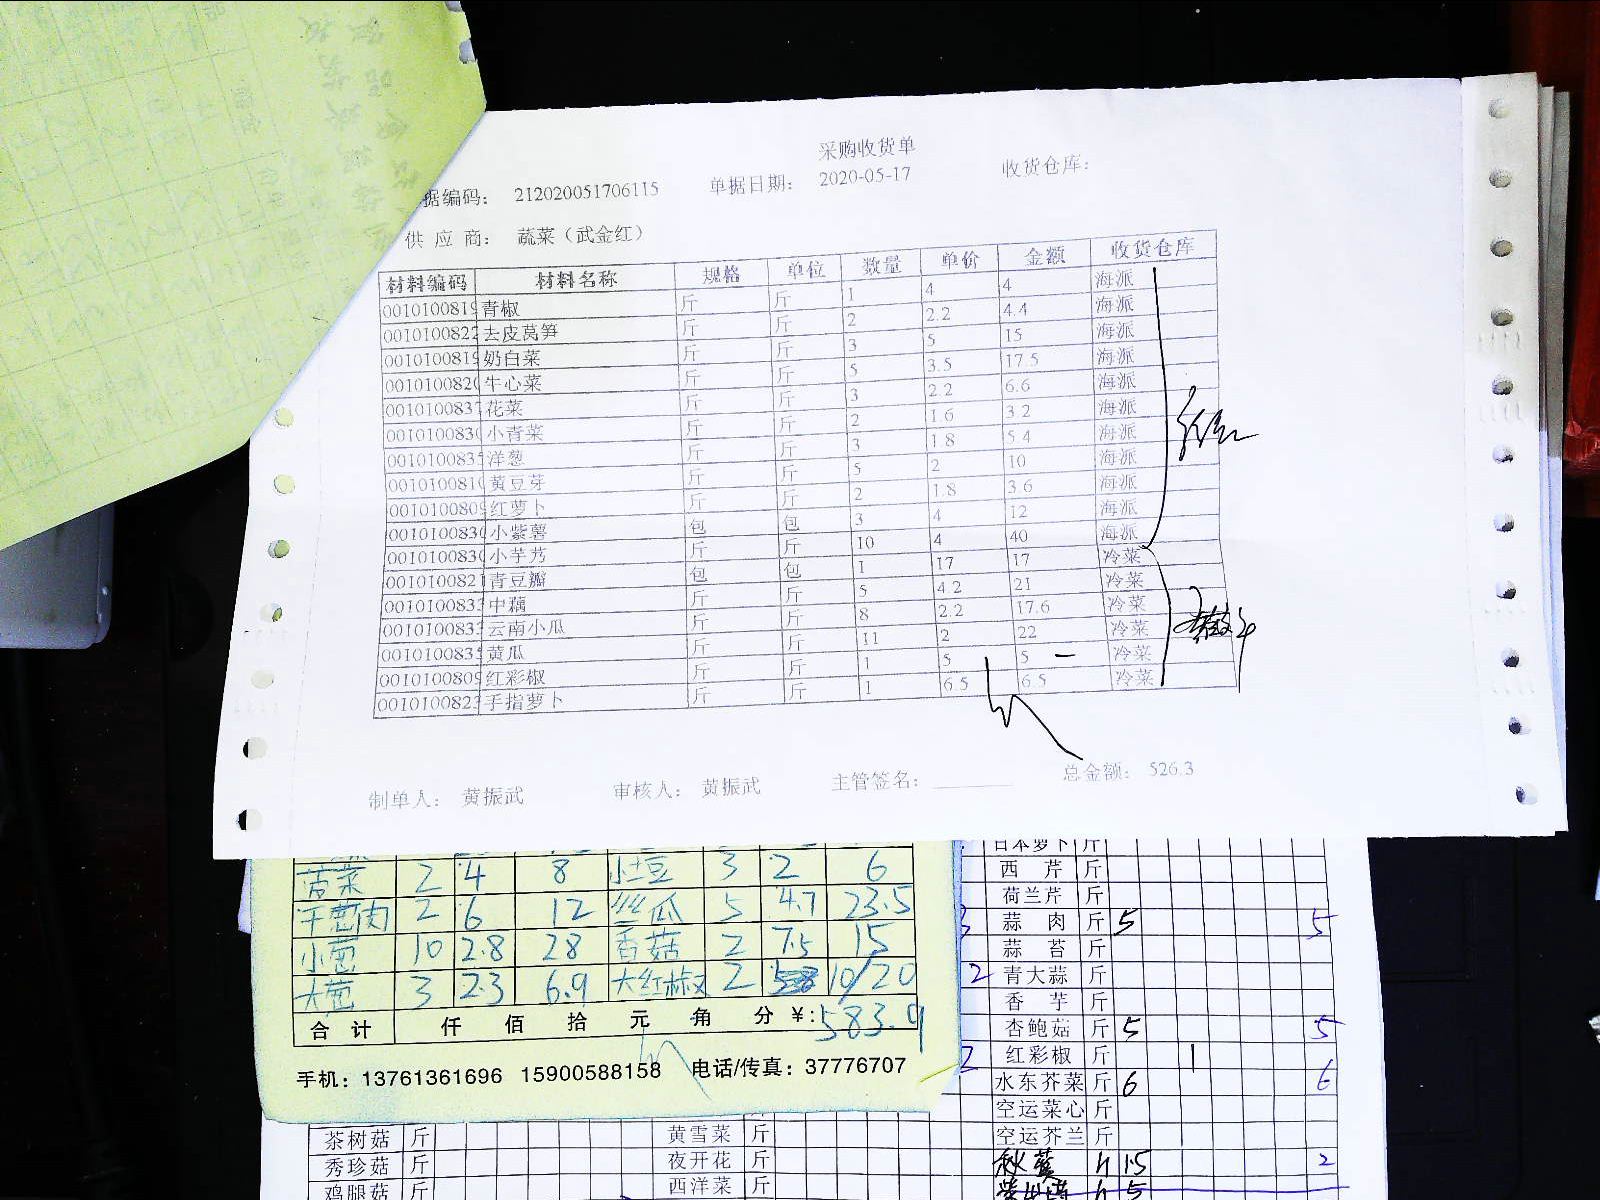 采购收货单
据编码： 212020051706115 单据日期： 2020-05-17 收货仓库：
供 应 商： 蔬菜（武金红）
材料编码 材料名称 规格 单位 数量 单价 金额 收货仓库
0010100819 青椒 斤 斤 1 4 4 海派
0010100822 去皮莴笋 斤 斤 2 2.2 4.4 海派
0010100819 奶白菜 斤 斤 3 5 15 海派
0010100820 牛心菜 斤 斤 5 3.5 17.5 海派
0010100837 花菜 斤 斤 3 2.2 6.6 海派
0010100830 小青菜 斤 斤 2 1.6 3.2 海派
0010100835 洋葱 斤 斤 3 1.8 5.4 海派
0010100810 黄豆芽 斤 斤 5 2 10 海派
0010100809 红萝卜 斤 斤 2 1.8 3.6 海派
0010100830 小紫薯 包 包 3 4 12 海派
0010100830 小芋艿 斤 斤 10 4 40 海派
0010100821 青豆瓣 包 包 1 17 17 冷菜
0010100833 中藕 斤 斤 5 4.2 21 冷菜
0010100833 云南小瓜 斤 斤 8 2.2 17.6 冷菜
0010100835 黄瓜 斤 斤 11 2 22 冷菜
0010100809 红彩椒 斤 斤 1 5 5 冷菜
0010100823 手指萝卜 斤 斤 1 6.5 6.5 冷菜
制单人： 黄振武 审核人： 黄振武 主管签名： 总金额： 526.3
2 4 8 小土豆 3 2 6
干葱肉 2 6 12 丝瓜 5 4.7 23.5
小葱 10 2.8 28 香菇 2 7.5 15
大葱 3 2.3 6.9 大红椒 2 10/20
合 计 仟 佰 拾 元 角 分 ¥:583.9
手机：13761361696 15900588158 电话/传真：37776707
日本萝卜 斤
西 芹 斤
荷兰芹 斤
蒜 肉 斤 5 5
蒜 苔 斤
2 青大蒜 斤
香 芋 斤
杏鲍菇 斤 5 5
2 红彩椒 斤 1
水东芥菜 斤 6 6
空运菜心 斤
茶树菇 斤 黄雪菜 斤 空运芥兰 斤
秀珍菇 斤 夜开花 斤 15 2
鸡腿菇 斤 西洋菜 斤 5